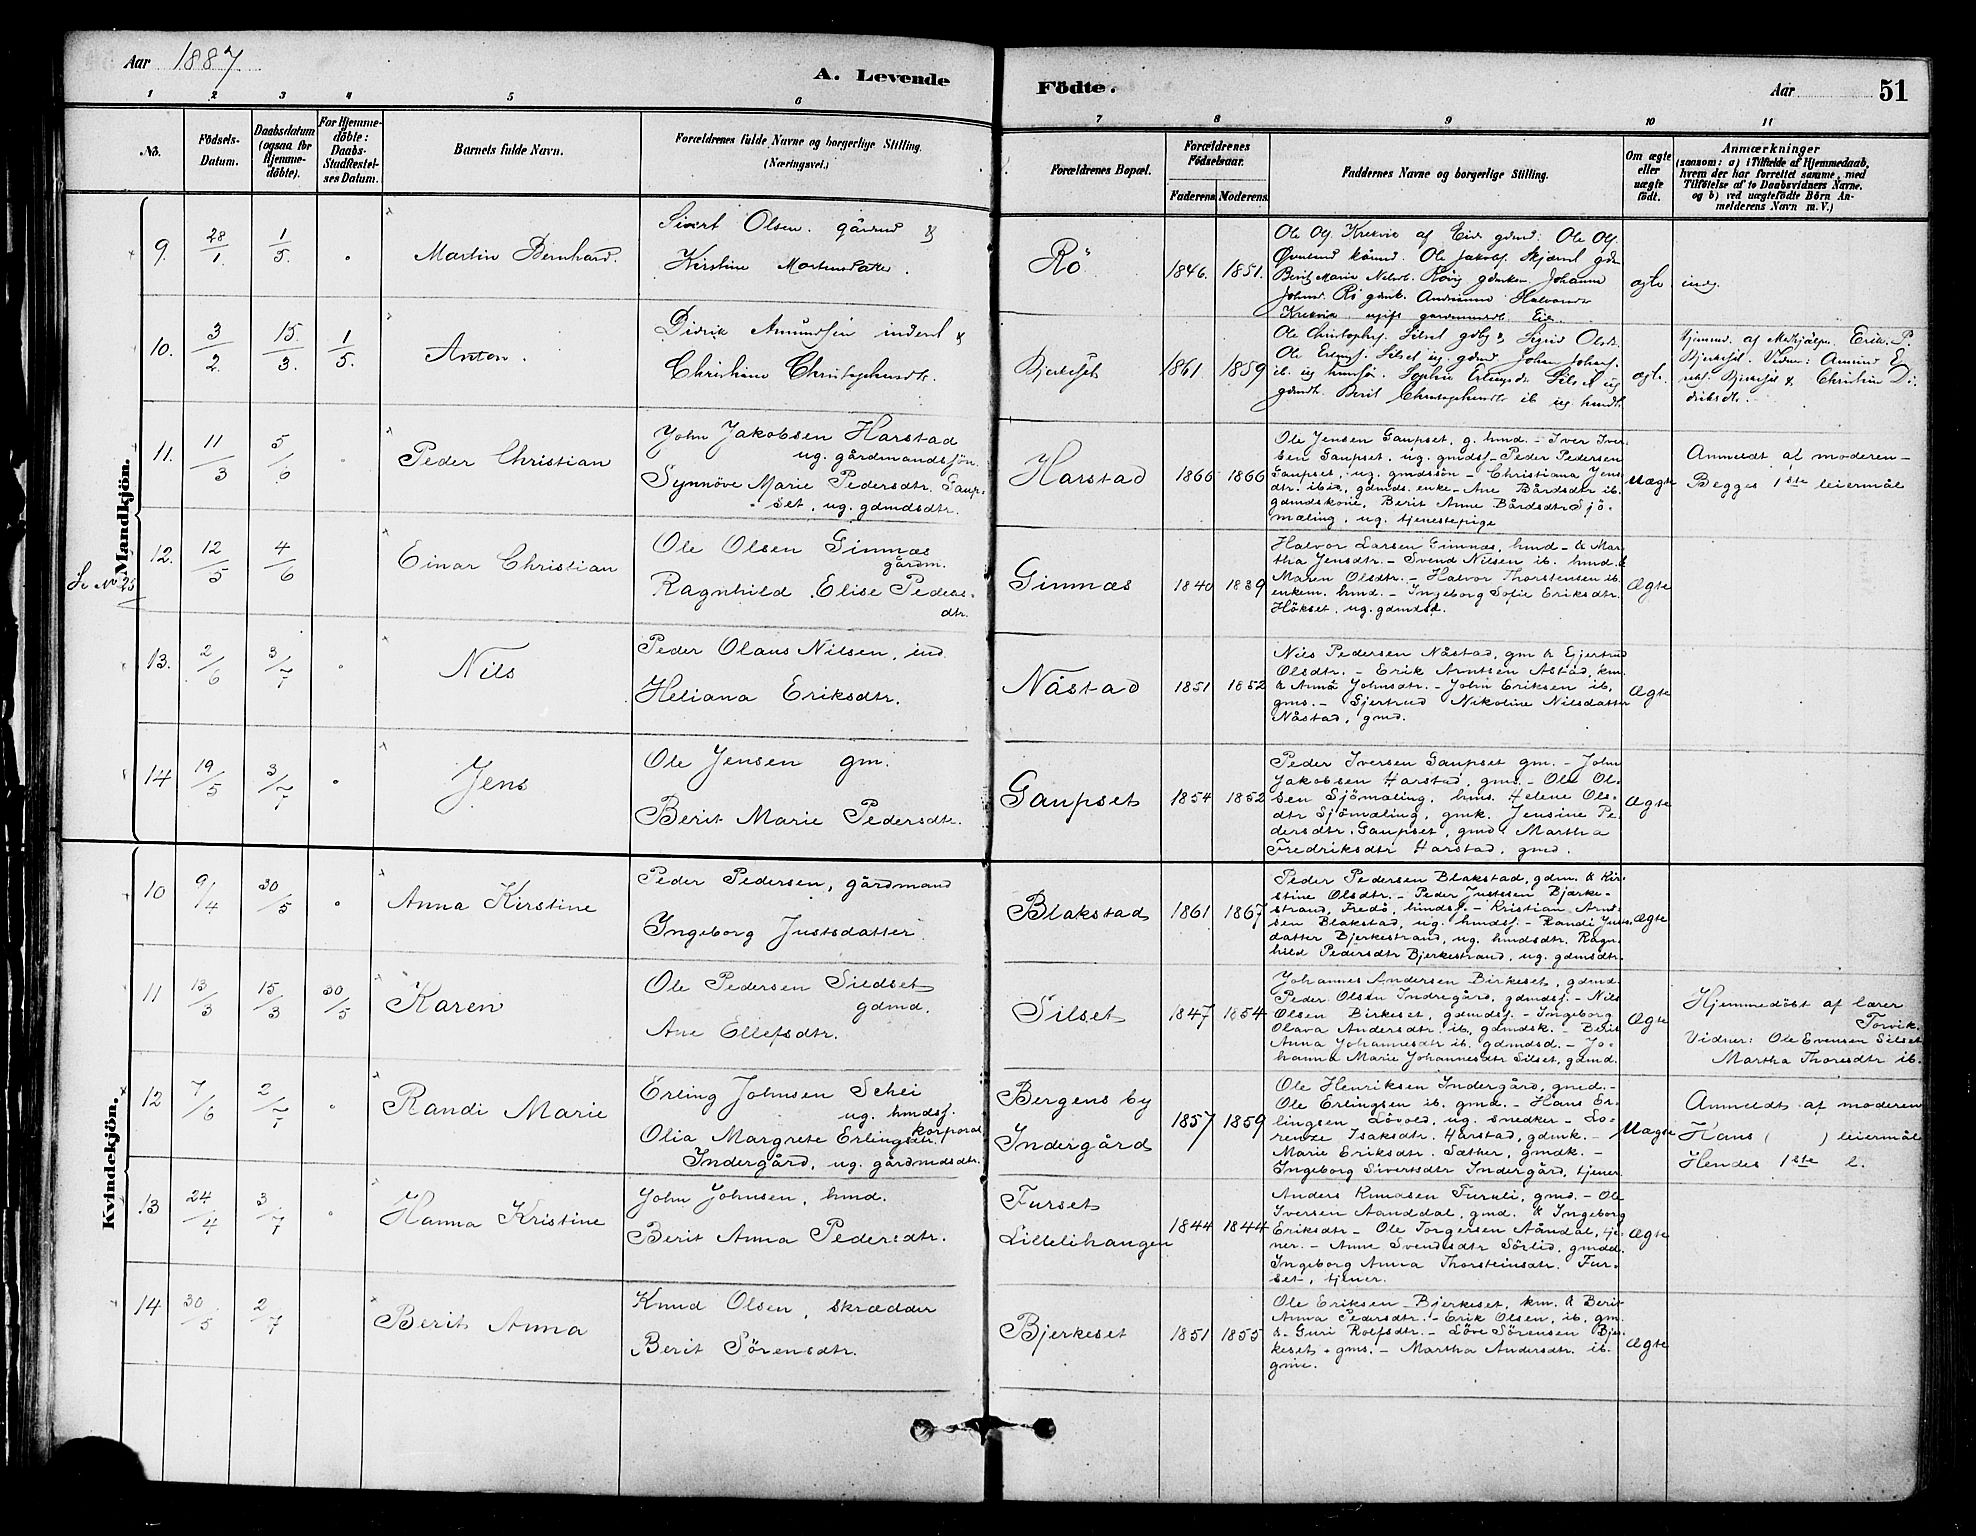 Aar 1887
A. Levende
Födte.
Aar
51
1 2 3 4 5 6 7 8 9 10 11
No.
Födsels-
Datum.
Daabsdatum
(ogsaa for
Hjemme-
döbte).
For Hjemme-
döbte:
Daabs-
Stadfæstel-
ses Datum.
Barnets fulde Navn.
Forældrenes fulde Navne og borgerlige Stilling.
(Næringsvei.)
Forældrenes Bopæl.
Forældrenes
Födselsaar.
Faderens Moderens
Faddernes Navne og borgerlige Stilling.
Om ægte
eller
uægte
födt.
Anmærkninger
(saasom: a) i Tilfælde af Hjemmedaab,
hvem der har forrettet samme, med
Tilföielse af to Daabsvidners Navne,
og b) ved uægtefödte Börn An-
melderens Navn m. V.)
Mandkjön.
Se No 25
9.
28/1.
1/5.
Martin Bernhard.
Sivert Olsen. gårmd &
Kirstine Mortensdatter.
Rö
1846. 1851.
Ole Olsf. Krekvik af Eide gdmd. Ole Olsf.
Johnsd. Rö gdmk.
ægte
10.
3/2.
15/3.
1/5
Anton.
Didrik Amundsen inderst &
Christiane Christophersdtr.
Bjerkeset
1861. 1859
Ole Christophersf. Silset gdbr & Sigrid Olsdtr.
Ole Erlingsf. Silset ug. gdmd Johan Johansf.
Sophie Erlingsdtr. Silset ug
gdmdt. Berit Christophersdtr ib ug hmdt.
ægte
Hjemmed. af Medhjælper Erik P.
Bjerkeset. Vidner: Amund E-
riksf. Bjerkeset & Christine Di-
driksdtr.
11.
11/3
5/6
Peder Christian
John Jakobsen Harstad
ug. gårdmandssjön.
Synnöve Marie Pedersdtr. Gaup-
set, ug. gdmdsdtr.
Harstad
1866 1866
Ole Jensen Gaupset, g. hmd. - Iver Iver-
sen Gaupset, ug. gmdsf. - Peder Pedersen
Gaupset, ug. gmdssön - Christiana Jens-
dtr. ibid, gdmds. enke - Ane Bårdsdtr ib.
gdmdskone. Berit Anne Bårdsdtr Sjö-
mæling, ug. tjenestepige
Uægte
Anmeldt af moderen -
Begges 1ste leiermål
12.
12/5
4/6
Einar Christian
Ole Olsen Gimnæs
gårdm.
Ragnhild Elise Peders-
dtr.
Gimnæs
1840 1839
Halvor Larsen Gimnæs, hmd - & Mar-
tha Jensdtr. - Svend Nilsen ib. hmd. &
Maren Olsdtr. - Halvor Thorstensen ib.
enkem. hmd. - Ingeborg Sofie Eriksdtr.
Hökset, ug. gdmdsd.
Ægte
13.
2/6
3/7
Nils
Peder Olaus Nilsen, ind.
Heliana Eriksdtr.
Nåstad
1851 1852
Nils Pedersen Nåstad, gm & Gjertrud
Olsdtr. - Erik Arntsen Åstad, km.
& Anna Johnsdtr. - John Eriksen ib.
gms. - Gjertrud Nikoline Nilsdatter
Nåstad, gmd.
Ægte
14
19/5
3/7
Jens
Ole Jensen gm.
Berit Marie Pedersdtr.
Gaupset
1854 1852
Peder Iversen Gaupset gm. - John
Jakobsen Harstad, gms. - Ole Ol-
sen Sjömæling, hms. Helene Ols-
dtr Sjömæling, gmk. Jensine Pe-
dersdtr. Gaupset, gmd. Martha
Fredriksdtr Harstad, gmd.
Ægte
Kvindekjön.
10
9/4
30/5
Anna Kirstine
Peder Pedersen, gårdmand
Ingeborg Justsdatter.
Blakstad
1861 1867
Peder Pedersen Blakstad, gdm. & Kir-
stine Olsdtr. - Peder Justsen Bjærke-
strand, Fredö, hmdsf. - Kristian Arnt-
sen Blakstad, ug. hmdsf. - Randi Justs-
datter Bjerkestrand, ug. hmdsdtr. Ragn-
hild Pedersdtr Bjerkestrand, ug. gdmsdtr.
Ægte
11
13/3
15/3
30/5
Karen
Ole Pedersen Sildset
gdmd.
Ane Ellefsdtr.
Silset
1847 1854
Johannes Andersen Birkeset, gdmd.
Peder Olsen Indregård, gdmdsf. - Nils
Olsen Birkeset, gdmdsf. - Ingeborg
Olava Andersdtr. ib, gdmdsk. - Berit
Anna Johannesdtr ib. gdmdsd. - Jo-
hanna Marie Johannesdtr Silset, gdmd.
Ægte
Hjemmedöbt af lærer
Torvik.
Vidner: Ole Evensen Silset
Martha Thoresdtr ib.
12
7/6
2/7
Randi Marie
Erling Johnsen Schei
ug. hmdsf.
korporal
Olia Margrete Erlingsdtr.
Indergård, ug. gårdmdsdtr.
Bergens by
Indergård
1857 1859
Ole Henriksen Indergård, gmd. -
Ole Erlingsen ib. gmd. - Hans Er-
lingsen Lövold, ug. snedker - Lo-
rentze Isaksdtr. Harstad, gdmk. -
Marie Eriksdtr. Sæther, gmdk. -
Ingeborg Sivertsdtr Indergård, tjener.
Uægte
Anmeldt af moderen
Hans ( ) leiermål
Hendes 1ste l.
13
24/4
3/7
Hanna Kristine
John Johnsen, hmd.
Berit Anna Pedersdtr.
Furset
Lillelihaugen
1844 1844
Anders Knudsen Furuli, gmd. - Ole
Iversen Aanddal, gmd. & Ingeborg
Eriksdtr - Ole Torgersen Aåndal, tje-
ner. - Anne Svendsdtr Sörlid, gmdd.
Ingeborg Anna Thorsteinsdtr. Fur-
set, tjener.
Ægte
14
30/5
2/7
Berit Anna
Knud Olsen, skrædder
Berit Sörensdtr.
Bjerkeset
1851 1855
Ole Eriksen Bjerkeset, km. & Berit
Anna Pedersdtr. - Erik Olsen, ib, gm.
& Guri Rolfsdtr. - Löve Sörensen Bjer-
keset, gms. - Martha Andersdtr. ib.
gmk.
Ægte